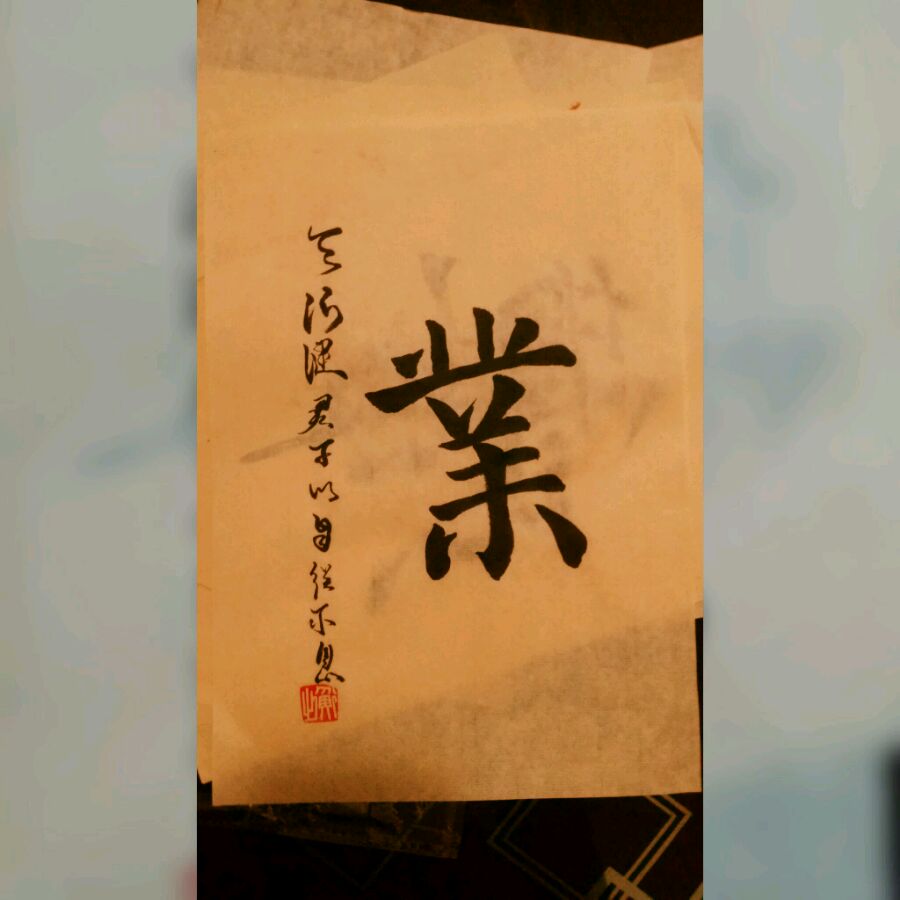 業
天行健君子以自強不息